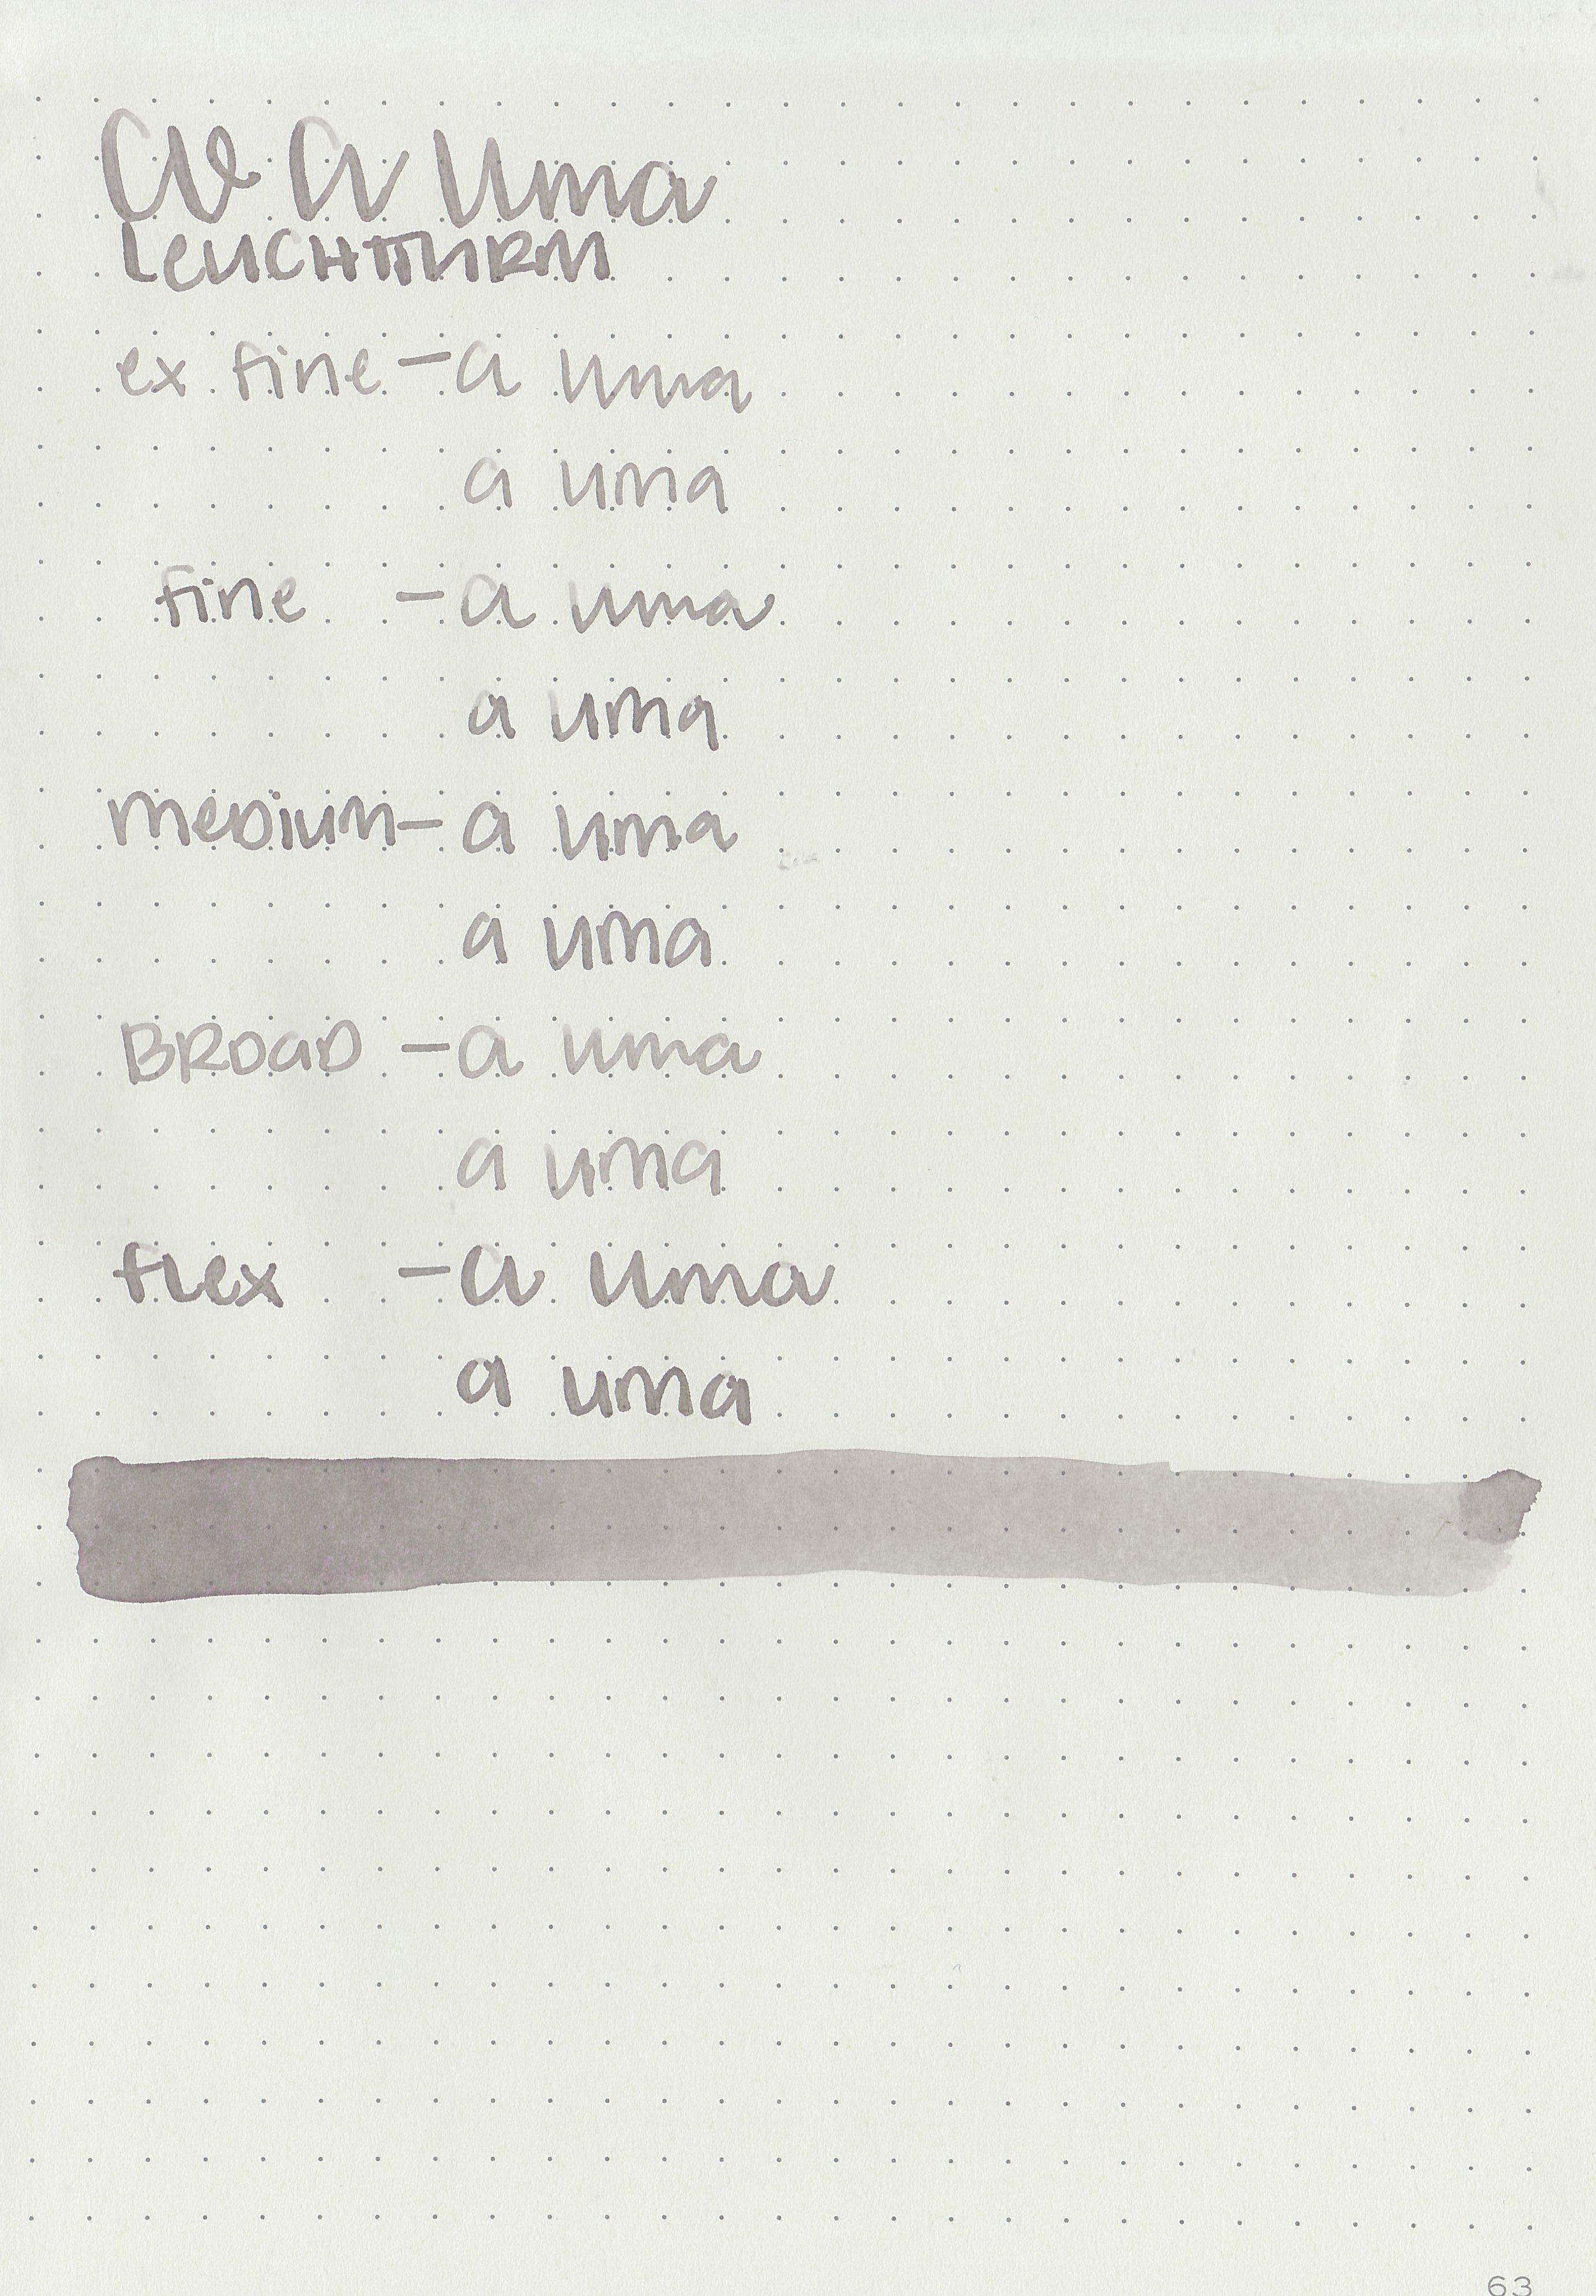 CV a Uma
LEUCHTTURM
ex fine - a uma
a uma
fine - a uma
a uma
medium - a uma
a uma
BROAD - a uma
a uma
flex - a uma
a uma
63